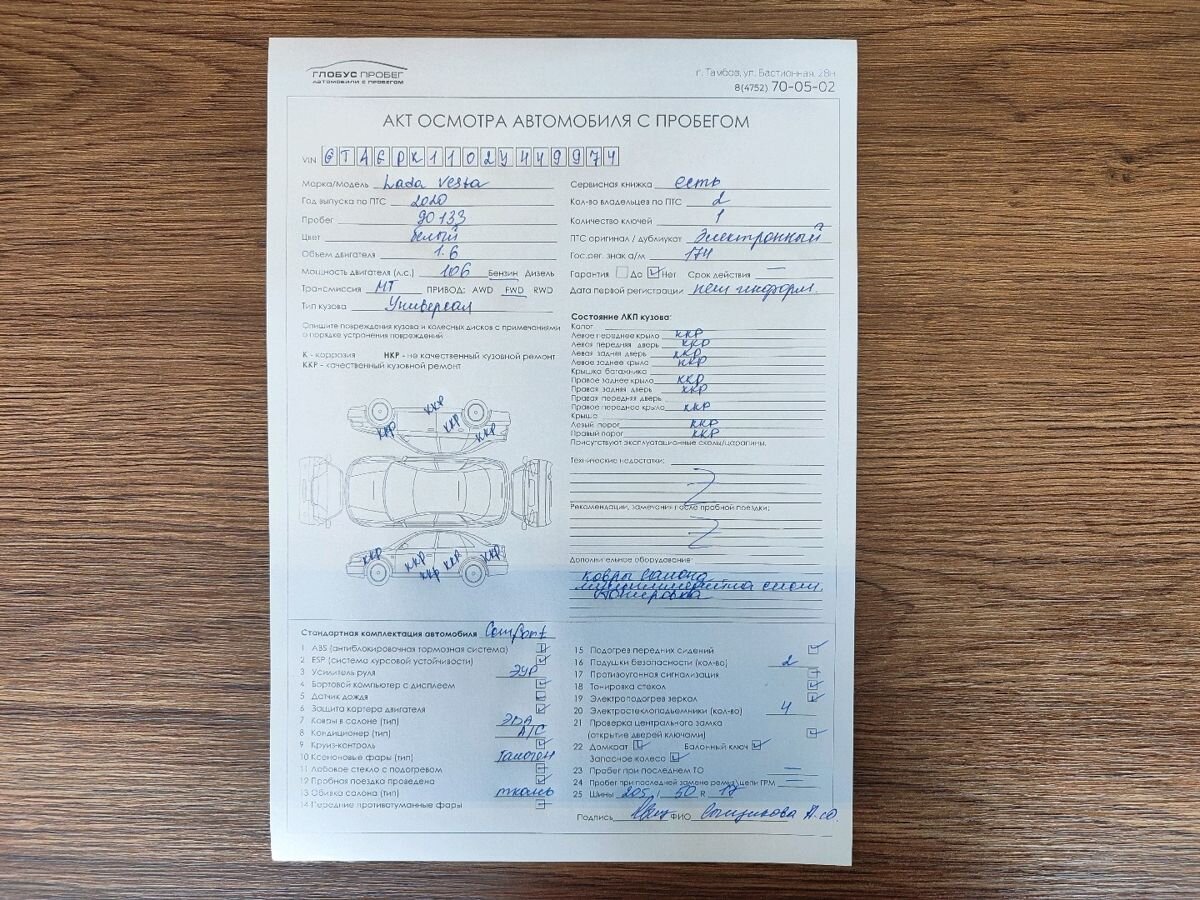 ГЛОБУС ПРОБЕГ
АВТОМОБИЛИ С ПРОБЕГОМ
г. Тамбов, ул. Бастионная, 28н
8(4752) 70-05-02
АКТ ОСМОТРА АВТОМОБИЛЯ С ПРОБЕГОМ
VIN
Марка/Модель Lada Vesta
Год выпуска по ПТС 2020
Пробег 90133
Цвет белый
Объем двигателя 1.6
Мощность двигателя (л.с.) 106 Бензин Дизель
Трансмиссия МТ ПРИВОД: AWD FWD RWD
Тип кузова Универсал
Опишите повреждения кузова и колесных дисков с примечаниями
о порядке устранения повреждений
К - коррозия НКР - не качественный кузовной ремонт
ККР - качественный кузовной ремонт
ККР
ККР ККР ККР
ККР ККР
ККР ККР ККР
Сервисная книжка есть
Кол-во владельцев по ПТС 2
Количество ключей 1
ПТС оригинал / дубликат Электронный
Гос.рег. знак а/м 174
Гарантия Да Нет Срок действия —
Дата первой регистрации нет информ.
Состояние ЛКП кузова:
Капот
Левое переднее крыло ККР
Левая передняя дверь ККР
Левая задняя дверь ККР
Левое заднее крыло ККР
Крышка багажника
Правое заднее крыло ККР
Правая задняя дверь ККР
Правая передняя дверь
Правое переднее крыло ККР
Крыша
Левый порог ККР
Правый порог ККР
Присутствуют эксплуатационные сколы/царапины.
Технические недостатки:
Рекомендации, замечания после пробной поездки:
Дополнительное оборудование:
ковры салона
тонировка
Стандартная комплектация автомобиля Comfort
1 ABS (антиблокировочная тормозная система)
2 ESP (система курсовой устойчивости)
3 Усилитель руля ЭУР
4 Бортовой компьютер с дисплеем
5 Датчик дождя
6 Защита картера двигателя
7 Ковры в салоне (тип) ЭВА
8 Кондиционер (тип) A/C
9 Круиз-контроль
10 Ксеноновые фары (тип) галоген
11 Лобовое стекло с подогревом
12 Пробная поездка проведена
13 Обивка салона (тип) ткань
14 Передние противотуманные фары
15 Подогрев передних сидений
16 Подушки безопасности (кол-во) 2
17 Противоугонная сигнализация
18 Тонировка стекол
19 Электроподогрев зеркал
20 Электростеклоподъемники (кол-во) 4
21 Проверка центрального замка
(открытие дверей ключами)
22 Домкрат Балонный ключ
Запасное колесо
23 Пробег при последнем ТО —
24 Пробег при последней замене ремня/цепи ГРМ —
25 Шины 205 / 50 R 17
Подпись ФИО